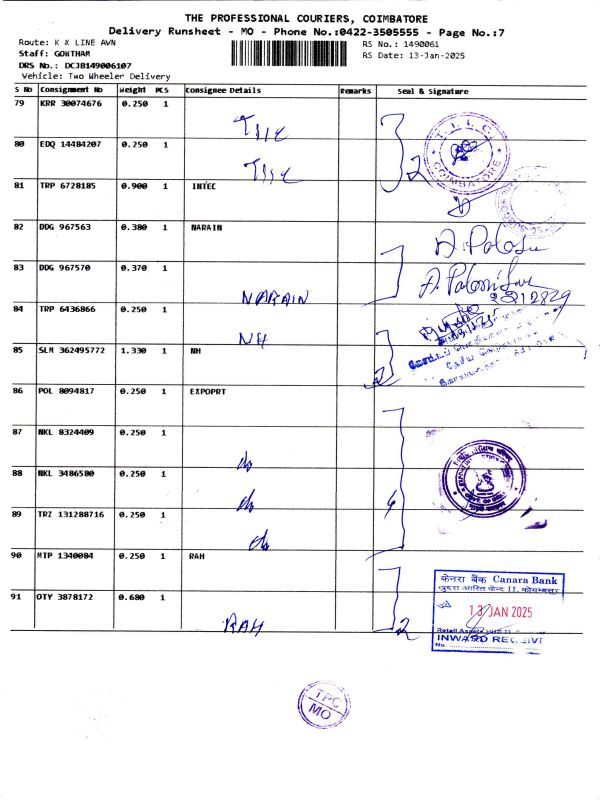 THE PROFESSIONAL COURIERS, COIMBATORE
Delivery Runsheet - MO - Phone No.:0422-3505555 - Page No.:7
Route: K K LINE AVN
RS No.: 1490061
Staff: GOWTHAM
RS Date: 13-Jan-2025
DRS No.: DCJB149006107
Vehicle: Two Wheeler Delivery
S No Consignment No Weight PCS Consignee Details Remarks Seal & Signature
79 KRR 30074676 0.250 1
80 EDQ 14484207 0.250 1
COIMBATORE
2
81 TRP 6728185 0.900 1 INTEC
82 DDG 967563 0.380 1 NARAIN
83 DDG 967570 0.370 1
NARAIN
84 TRP 6436866 0.250 1
NH
85 SLM 362495772 1.330 1 NH
2
86 POL 8094817 0.250 1 EXPOPRT
87 NKL 8324409 0.250 1
do
88 NKL 3486580 0.250 1
do
4
89 TRZ 131288716 0.250 1
do
90 MTP 1340084 0.250 1 RAH
केनरा बैंक Canara Bank
91 OTY 3878172 0.680 1
13 JAN 2025
RAH
2
INWARD RECEIVE
No.
TPC
MO